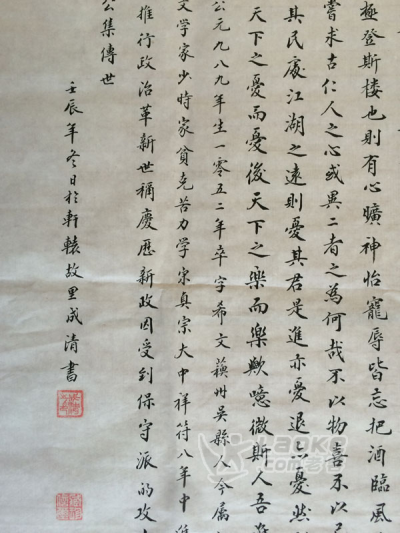 極登斯楼也則有心曠神怡寵辱皆忘把酒臨風
嘗求古仁人之心或異二者之為何哉不以物喜不以己
其民處江湖之遠則憂其君是進亦憂退亦憂然
天下之憂而憂後天下之樂而樂歟噫微斯人吾
公元九八九年生一零五二年卒字希文蘇州吳縣人今属
文学家少時家貧克苦力学宋真宗大中祥符八年中進
推行政治革新世稱慶歷新政因受到保守派的攻
公集傳世
壬辰年冬日於軒轅故里成清書